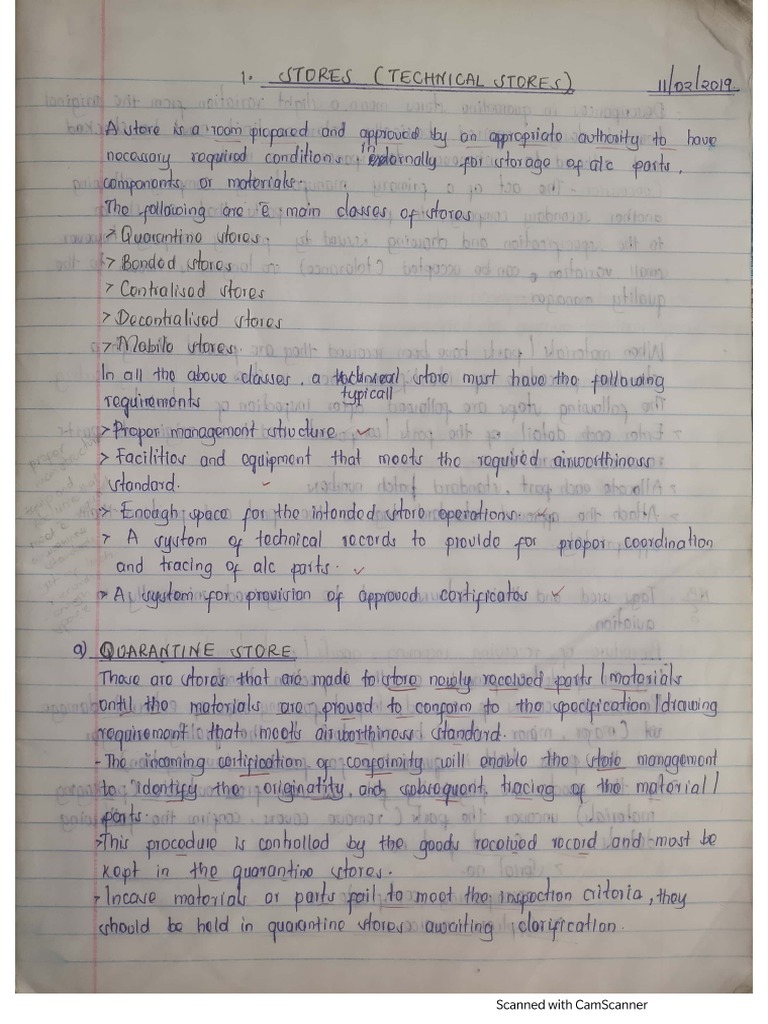 1. STORES (TECHNICAL STORES) 11/02/2019.
A store is a room prepared and approved by an appropriate authority to have
necessary required conditions internally for storage of a/c parts,
components or materials.
The following are e main classes of stores
> Quarantine stores
> Bonded stores
> Centralised stores
> Decentralised stores
> Mobile stores.
In all the above classes, a technical store must have the following
typicall
requirements
> Proper management structure ✓
> Facilities and equipment that meets the required airworthiness
standard. ✓
> Enough space for the intended store operations. ✓
> A system of technical records to provide for proper coordination
and tracing of a/c parts. ✓
> A system for provision of approved certificates ✓
a) QUARANTINE STORE
These are stores that are made to store newly received parts / materials
until the materials are proved to conform to the specification / drawing
requirement that meets airworthiness standard.
- The incoming certification of conformity will enable the store management
to identify the originality and subsequent tracing of the material /
parts.
> This procedure is controlled by the goods received record and must be
kept in the quarantine stores.
> Incase materials or parts fail to meet the inspection criteria, they
should be held in quarantine stores awaiting clarification.
Scanned with CamScanner